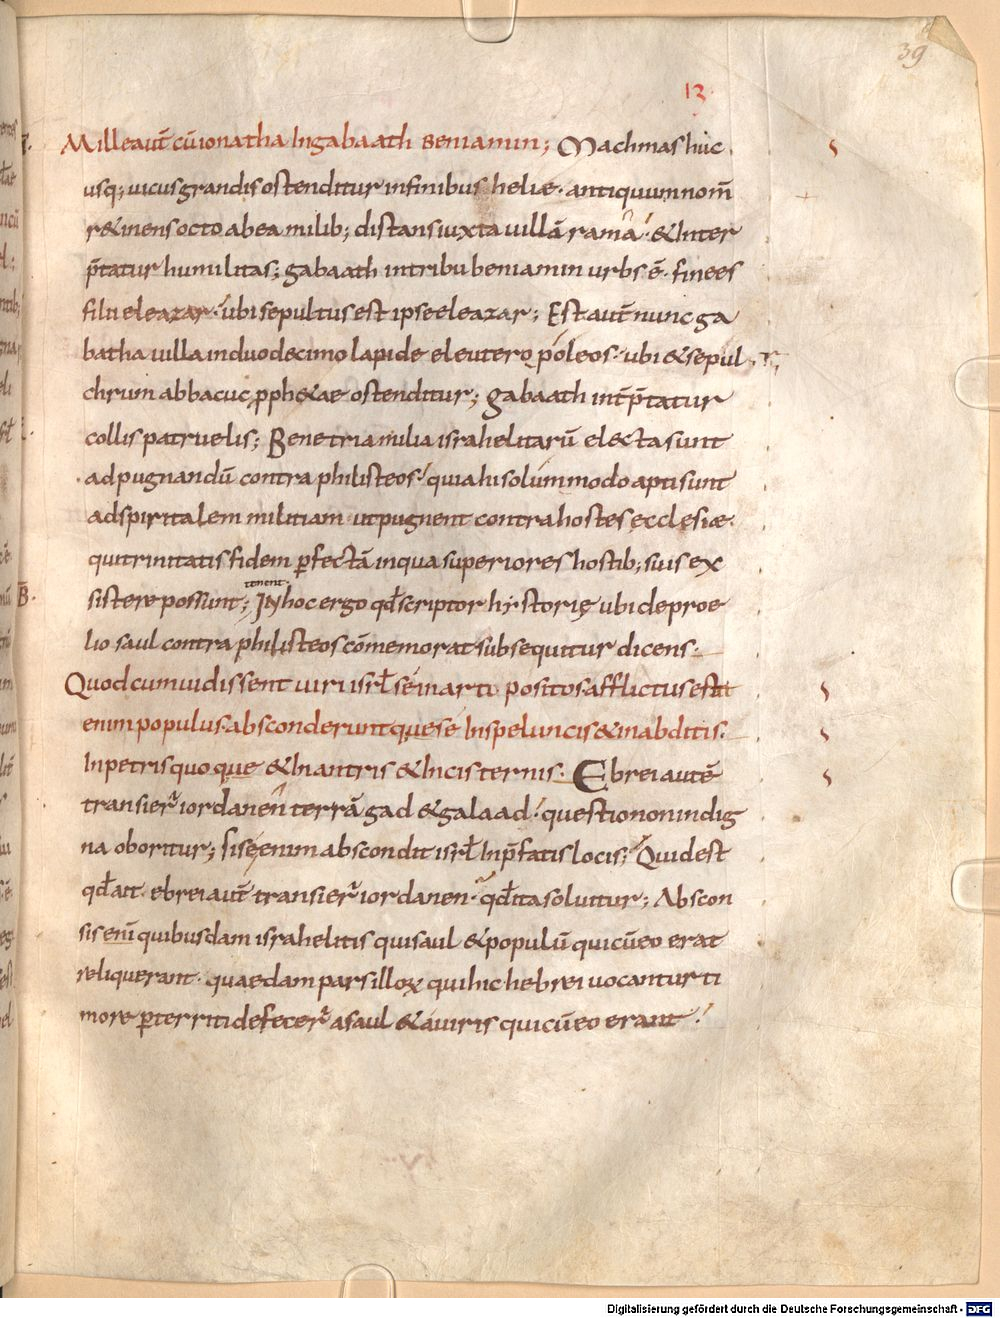 39
13
Milleaut̄ cū ionatha Ingabaath Beniamin; Machmas huc
usq; uicus grandis ostenditur infinibus heliæ · antiquum nom̄
r&inens octo abea milib; distans iuxta uillā rama · & Inter
p̄tatur humilitas; gabaath intribu beniamin urbs ē · finees
filii eleazar · ubi sepultus est ipse eleazar; Est aut̄ nunc ga
batha uilla induodecimo lapide eleuteropoleos · ubi & sepul
chrum abbacuc proph&ae ostenditur; gabaath int̄p̄tatur
collis patruelis; Bene tria milia israhelitarū electa sunt
ad pugnandū contra philisteos · quia hi solummodo apti sunt
adspiritalem militiam ut pugnent contra hostes ecclesiæ ·
qui trinitatis fidem perfectā inqua superiores hostib; suis ex
tenent ·
sistere possunt; IN hoc ergo qđ scriptor hystorię ubi de proe
B ·
lio saul contra philisteos cōmemorat subsequitur dicens ·
Quod cum uidissent uiri isrł se inarti positos afflictus est
enim populus absconderunt que se Inspeluncis & inabditis ·
Inpetris quoque & Inantris & Incisternis · Ebrei autē
transier̄ iordanen terrā gad & galaad · questio non indig
na oboritur; si se enim abscondit isrł Inp̄fatis locis; Quid est
qđ ait · ebrei aut̄ transier̄ iordanen · qđ ita soluitur; Abscon
sis enī quibusdam israhelitis qui saul & populū qui cū eo erat
reliquerant · quaedam pars illoꝝ qui hic hebrei uocantur ti
more perterriti defecer̄ a saul & a uiris qui cū eo erant ·
Digitalisierung gefördert durch die Deutsche Forschungsgemeinschaft - DFG